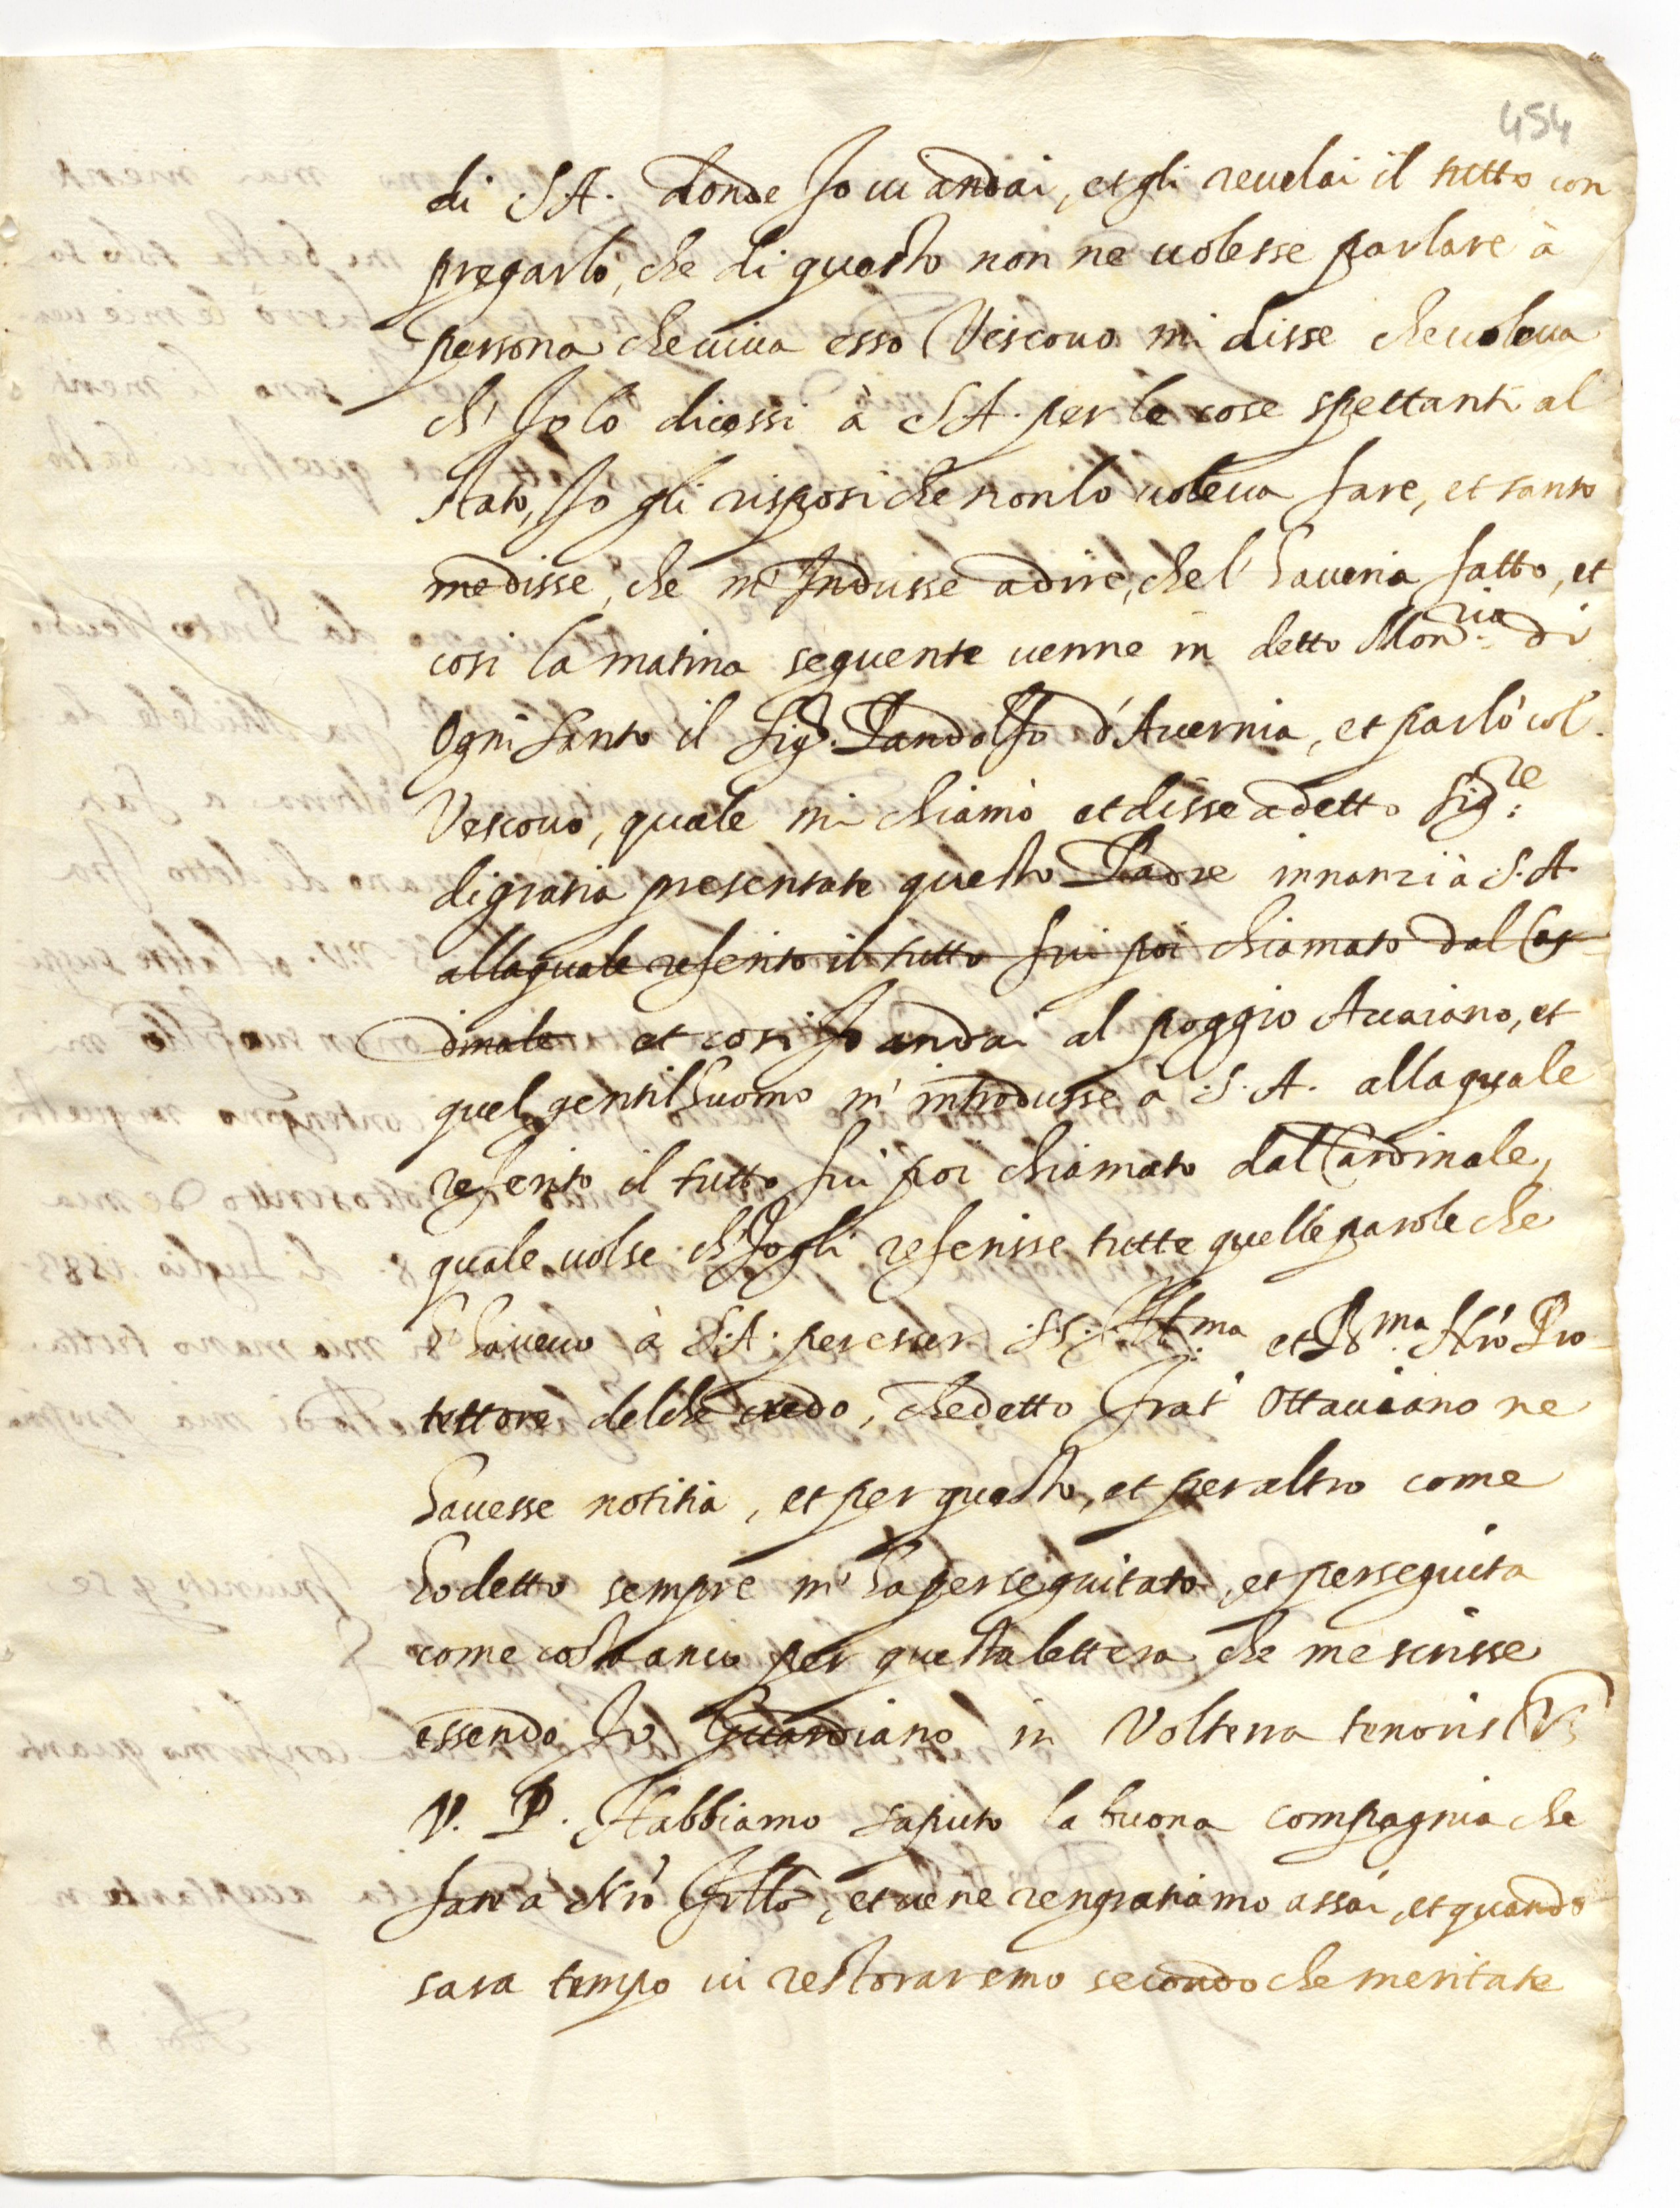 454
di S A. donde Io ui andai, et gli reuelai il tutto con
pregarlo, che di questo non ne uolesse parlare à
persona che uiua esso Vescouo mi disse che uoleua
ch' Io lo dicessi à S A. per le cose spettanti al
stato, Io gli risposi che non lo uoleua fare, et tanto
me disse, che m' Indusse a dire, che l' haueria fatto, et
cosi la matina seguente uenne in detto Mon.ria di
Ogni Santo il Sig.r Pandolfo d' Auernia, et parlò col
Vescouo, quale mi chiamò et disse a detto Sig.re
di gratia presentate questo Padre innanzi à S. A.
alla quale referito il tutto fui poi chiamato dal Car-
dinale et cosi Io andai al poggio Accaiano, et
quel gentilhuomo m' introdusse à S. A. alla quale
referito il tutto fui poi chiamato dal Cardinale,
quale uolse ch' Io gli referisse tutte quelle parole che
l' haueuo à S. A. per esser S. S. Ill.ma et R.ma Nr̃o Pro-
tettore del che credo, che detto frat' Ottauiano ne
hauesse notitia, et per questo, et per altro come
ho detto sempre m' ha perseguitato, et perseguita
come costa anco per questa lettera che me scrisse
essendo Io Guardiano in Volterra tenoris V3
V. P. Habbiamo saputo la buona compagnia che
fate a Nr̃o frl̃lo, et ue ne rengratiamo assai, et quando
sara tempo ui restoraremo secondo che meritate